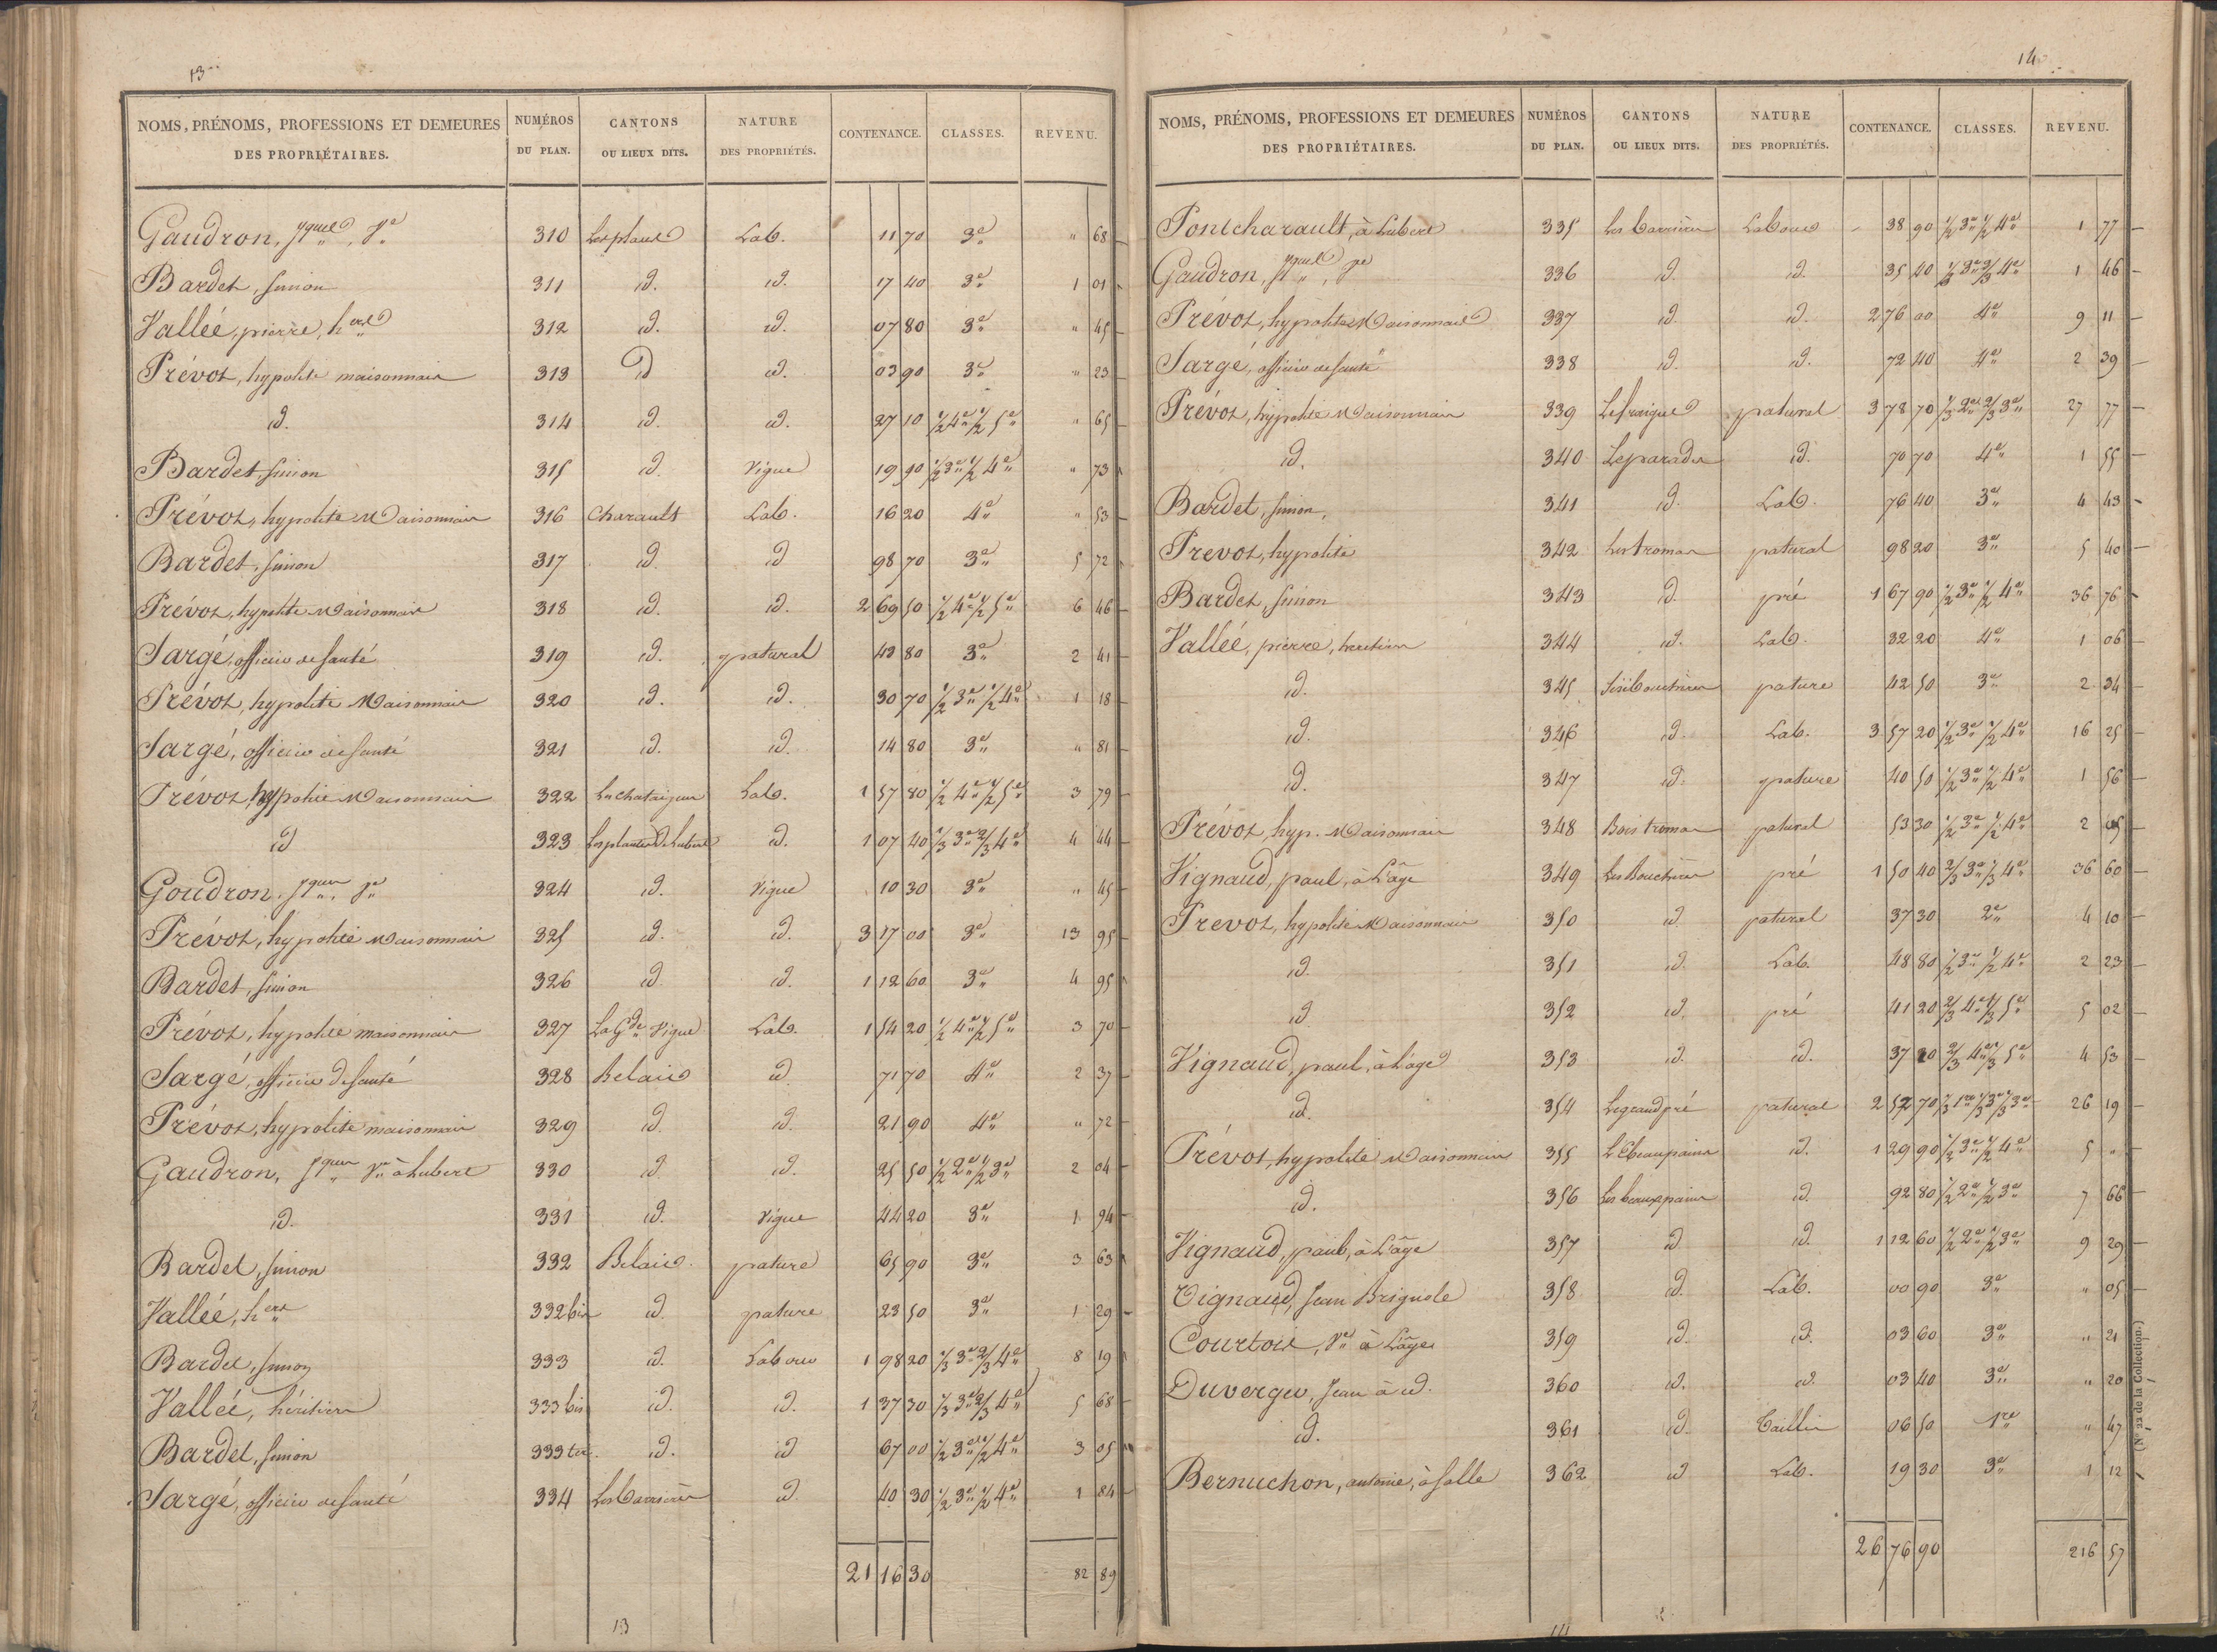 13
NOMS, PRÉNOMS, PROFESSIONS ET DEMEURES DES PROPRIÉTAIRES. NUMÉROS DU PLAN. CANTONS OU LIEUX DITS. NATURE DES PROPRIÉTÉS. CONTENANCE. CLASSES. REVENU.
Gaudron, Jques, Ve 310 Lab. 11 70 3e " 68
Bardet, simon 311 id. id. 17 40 3e 1 01
Valleé, pierre, hers 312 id. id. 07 80 3e " 45
Prévot, hypolite maisonnais 313 id id. 03 90 3e " 23
id. 314 id. id. 27 10 1/2 4e 1/2 5e " 65
Bardet, simon 315 id. Vigne 19 90 1/2 3e 1/2 4e " 73
Prévot, hypolite Maisonnais 316 Charault Lab. 16 20 4e " 53
Bardet, simon 317 id id 98 70 3e 5 72
Prévot, hypolite Maisonnais 318 id. id. 2 69 50 1/2 4e 1/2 5e 6 46
Sargé, officier de santé 319 id. patural 43 80 3e 2 41
Prévot, hypolite Maisonnais 320 id. id. 30 70 1/2 3e 1/2 4e 1 18
Sargé, officier de santé 321 id. id. 14 80 3e " 81
Prévot, hypolite Maisonnais 322 Lab. 1 57 80 1/2 4e 1/2 5e 3 79
id 323 id. 1 07 40 1/3 3e 2/3 4e 4 44
Goudron, Jques, Ve 324 id. Vigne 10 30 3e " 45
Prévot, hypolite Maisonnais 325 id. id. 3 17 00 3e 13 95
Bardet, simon 326 id. id. 1 12 60 3e 4 95
Prévot, hypolite maisonnais 327 La Gde Vigne Lab. 1 54 20 1/2 4e 1/2 5e 3 70
Sargé, officier de santé 328 Belair id 71 70 4e 2 37
Prévot, hypolite maisonnais 329 id. id. 21 90 4e " 72
Gaudron, Jques Ve à Lubert 330 id. id. 25 50 1/2 2e 1/2 3e 2 04
id. 331 id. Vigne 44 20 3e 1 94
Bardet, simon 332 Belair pature 65 90 3e 3 63
Valleé, hers 332 bis id. pature 23 50 3e 1 29
Bardet, simon 333 id. Labour 1 98 20 1/3 3e 2/3 4e 8 19
Valleé, héritiers 333 bis id. id. 1 37 30 1/3 3e 2/3 4e 5 68
Bardet, simon 333 ter. id. id 67 00 1/2 3e 1/2 4e 3 05
Sargé, officier de santé 334 Les Carrières id 40 30 1/2 3e 1/2 4e 1 84
21 16 30 82 89
13
14
NOMS, PRÉNOMS, PROFESSIONS ET DEMEURES DES PROPRIÉTAIRES. NUMÉROS DU PLAN. CANTONS OU LIEUX DITS. NATURE DES PROPRIÉTÉS. CONTENANCE. CLASSES. REVENU.
Pontcharault, à Lubert 335 Les Carrières Labour 38 90 1/2 3e 1/2 4e 1 77
Gaudron, Jques, Ve 336 id. id. 35 40 1/3 3e 2/3 4e 1 46
Prévot, hypolite Maisonnais 337 id. id. 2 76 00 4e 9 11
Sargé, officier de santé 338 id. id. 72 40 4e 2 39
Prévot, hypolite Maisonnais 339 patural 3 78 70 1/3 2e 2/3 3e 27 77
id. 340 id. 70 70 4e 1 55
Bardet, simon, 341 id. Lab. 76 40 3e 4 43
Prevot, hypolite 342 patural 98 20 3e 5 40
Bardet, simon 343 id. pré 1 67 90 1/2 3e 1/2 4e 36 76
Valleé, pierre, héritiers 344 id. Lab. 32 20 4e 1 06
id. 345 pature 42 50 3e 2 34
id. 346 id. Lab. 3 57 20 1/2 3e 1/2 4e 16 25
id. 347 id. pature 40 50 1/2 3e 1/2 4e 1 56
Prévot, hyp. Maisonnais 348 patural 53 30 1/2 3e 1/2 4e 2 05
Vignaud, paul, à L'âge 349 pré 1 50 40 2/3 3e 1/3 4e 36 60
Prevot, hypolite Maisonnais 350 id. patural 37 30 2e 4 10
id. 351 id. Lab. 48 80 1/2 3e 1/2 4e 2 23
id 352 id. pré 41 20 2/3 4e 1/3 5e 5 02
Vignaud, paul, à L'age 353 id. id. 37 20 2/3 4e 1/3 5e 4 53
id. 354 Le grand pré patural 2 52 70 26 19
Prévot, hypolite Maisonnais 355 id. 1 29 90 1/2 3e 1/2 4e 5 "
id. 356 id. 92 80 1/2 2e 1/2 3e 7 66
Vignaud, paul, à L'âge 357 id. id. 1 12 60 1/2 2e 1/2 3e 9 29
Vignaud, Jean Brignole 358 id. Lab. 00 90 3e " 05
Courtois, Ve à L'âge 359 id. id. 03 60 3e " 21
Duverger, Jean à id. 360 id. id. 03 40 3e " 20
id. 361 id. Taillis 06 50 1re " 47
Bernuchon, antoine, à salle 362 id Lab. 19 30 3e 1 12
26 76 90 216 57
14
(No 22 de la Collection.)